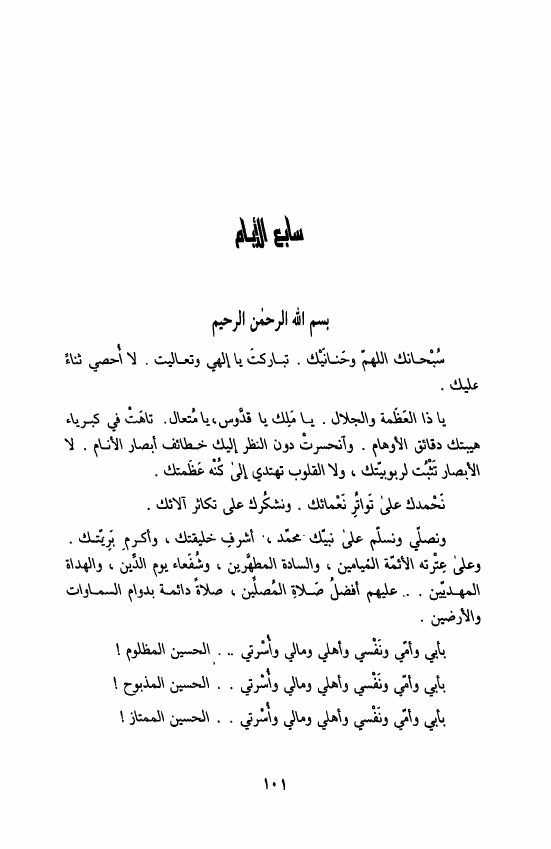 سابع الأيام
بسم الله الرحمٰن الرحيم
سُبْحانك اللهمّ وحَنانَيْك . تباركتَ يا إلهي وتعاليت . لا أُحصي ثناءً
عليك .
يا ذا العَظَمة والجلال . يا مَلِك يا قدُّوس، يا مُتعال. تاهَتْ في كبرياء
هيبتك دقائق الأوهام . وآنحسرتْ دون النظر إليك خطائف أبصار الأنام . لا
الأبصار تَثْبُت لربوبيّتك ، ولا القلوب تهتدي إلىٰ كُنْه عَظَمتك .
نَحْمدك علىٰ تَواتُرِ نَعْمائك . ونشكُرك على تكاثر آلائك .
ونصلّي ونسلّم علىٰ نبيّك محمّد ، أشرفِ خليقتك ، وأكرمِ بَرِيّتك .
وعلىٰ عِتْرته الأئمّة الميامين ، والسادة المطهَّرين ، وشُفَعاء يوم الدِّين ، والهداة
المهديّين . .. عليهم أفضلُ صَلاةِ المُصلِّين ، صلاةً دائمة بدوام السماوات
والأرضين .
بأبي وأمّي ونَفْسي وأهلي ومالي وأُسْرتي .. . الحسين المظلوم !
بأبي وأمّي ونَفْسي وأهلي ومالي وأُسْرتي . . الحسين المذبوح !
بأبي وأمّي ونَفْسي وأهلي ومالي وأُسْرتي . . الحسين الممتاز !
١٠١